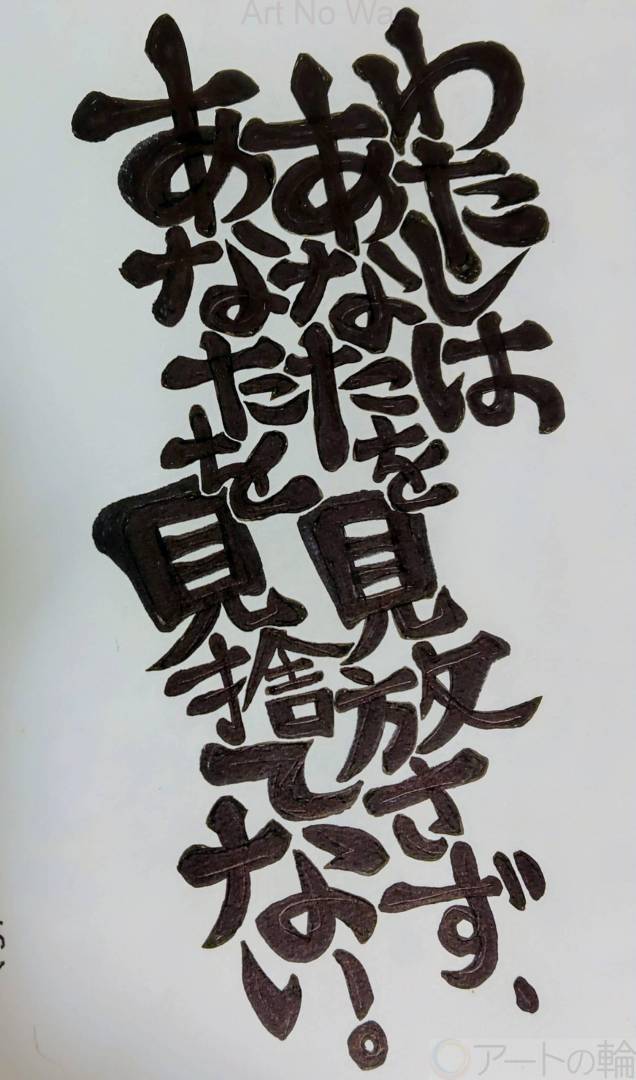 Art No Wa
わたしは
あなたを見放さず、
あなたを見捨てない。
アートの輪